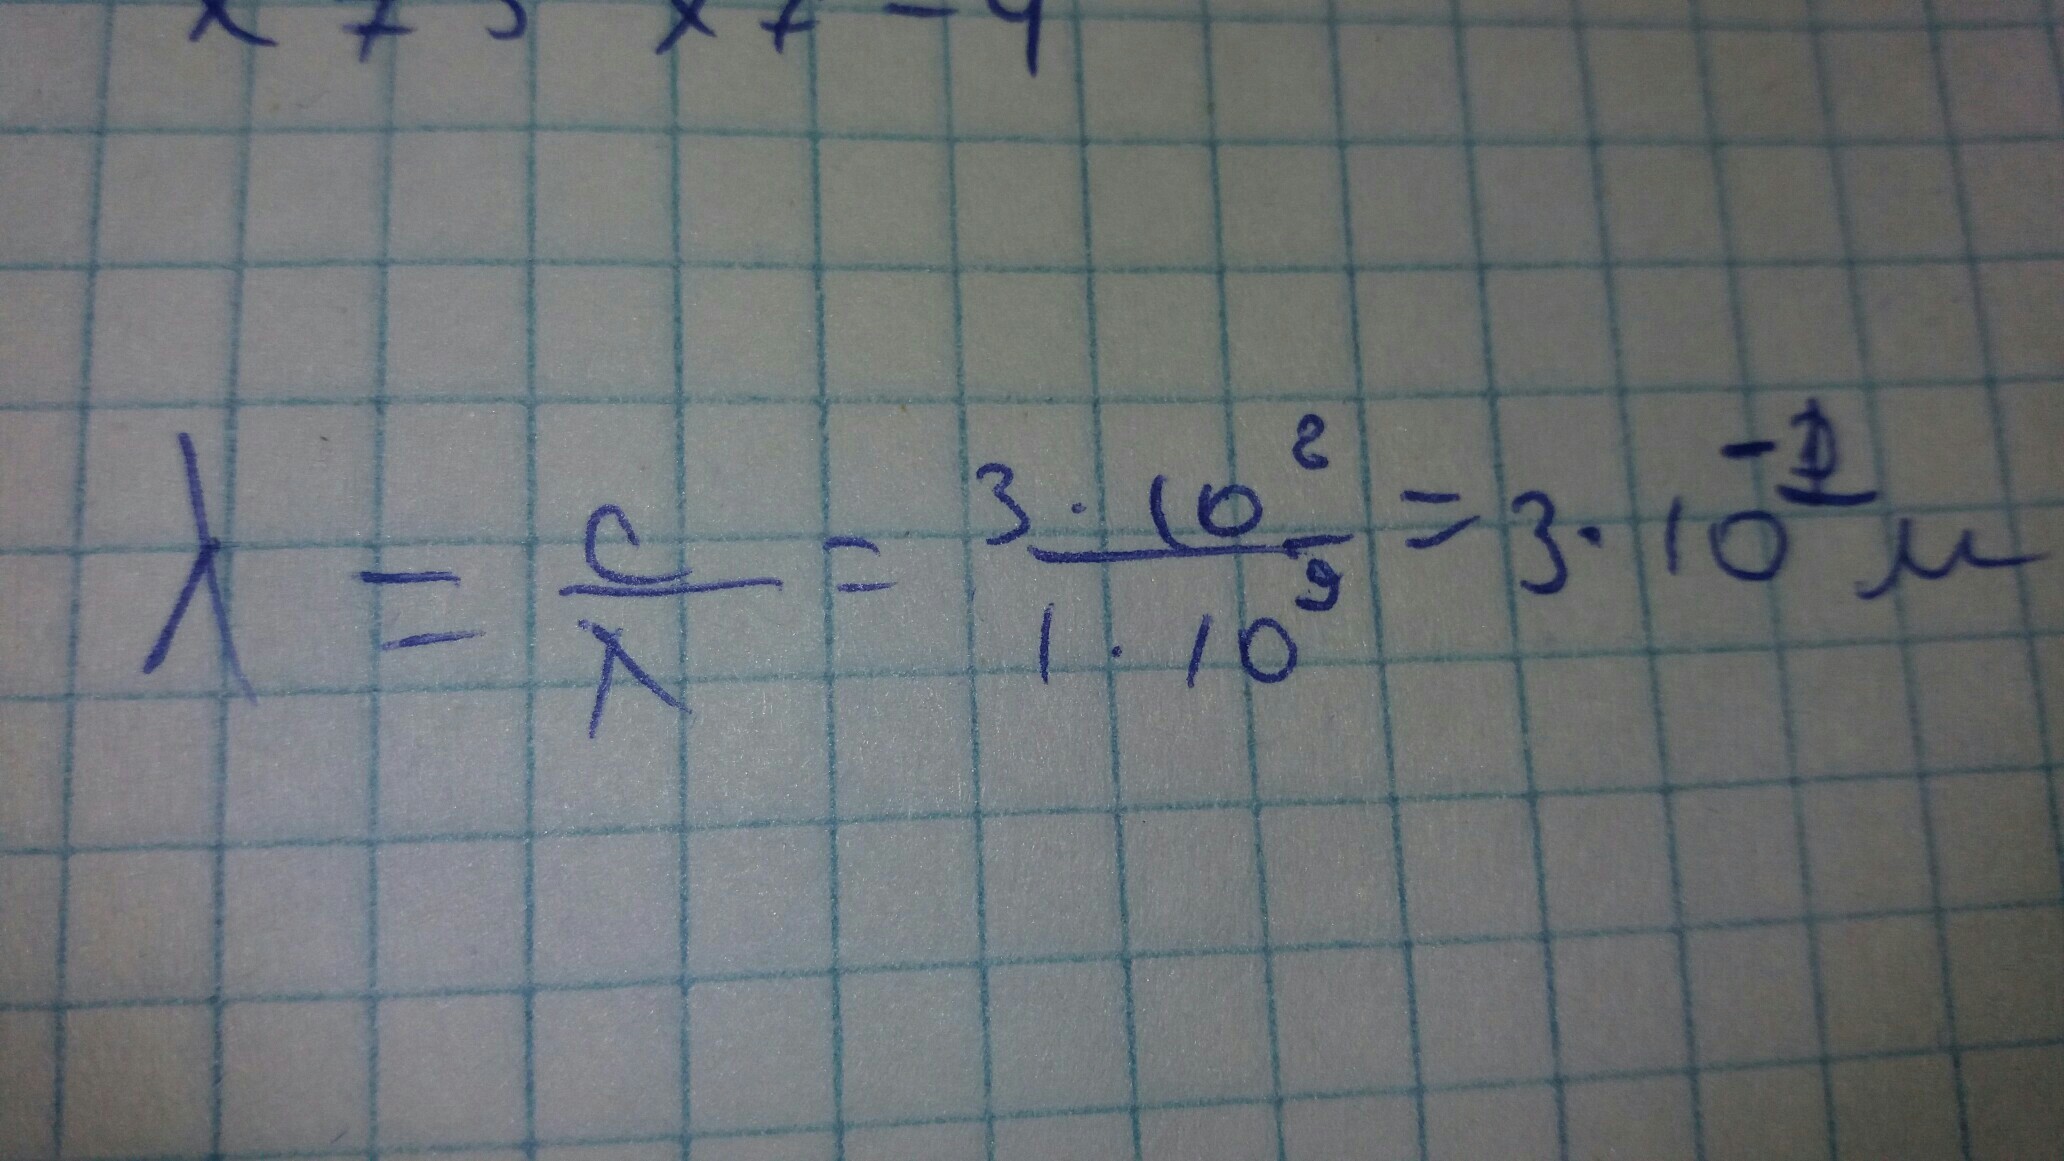 x ≠ 3 x ≠ -4
λ = c/λ = 3·10⁸/1·10⁹ = 3·10⁻¹ м